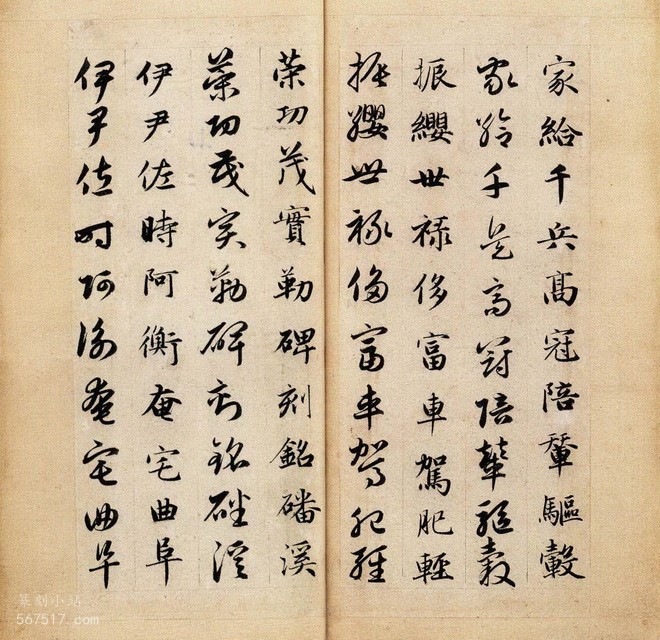 家給千兵高冠陪輦驅轂
家給千兵高冠陪輦驅轂
振纓世祿侈富車駕肥輕
振纓世祿侈富車駕肥輕
策功茂實勒碑刻銘磻溪
策功茂實勒碑刻銘磻溪
伊尹佐時阿衡奄宅曲阜
伊尹佐時阿衡奄宅曲阜
篆刻小站
567517.com